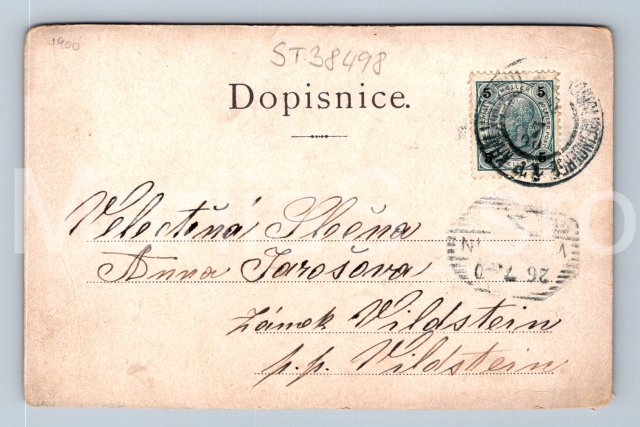 1900
ST38498
Dopisnice.
5 5
Velectěná Slečna
Anna Jarošova
zámek Vildstein
p.p. Vildstein
26 7